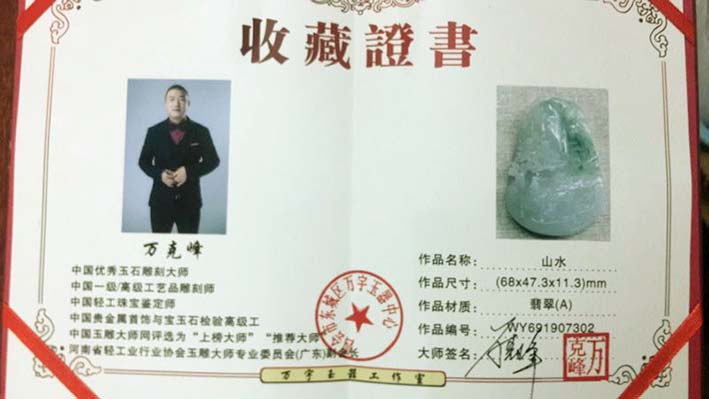 收藏證書
万克峰
中国优秀玉石雕刻大师
中国一级/高级工艺品雕刻师
中国轻工珠宝鉴定师
中国贵金属首饰与宝玉石检验高级工
中国玉雕大师网评选为“上榜大师”“推荐大师”
河南省轻工业行业协会玉雕大师专业委员会(广东)副会长
作品名称: 山水
作品尺寸: (68x47.3x11.3)mm
作品材质: 翡翠(A)
作品编号: WY691907302
大师签名:
万克峰
四会市东城区万字玉器中心
万字玉器工作室